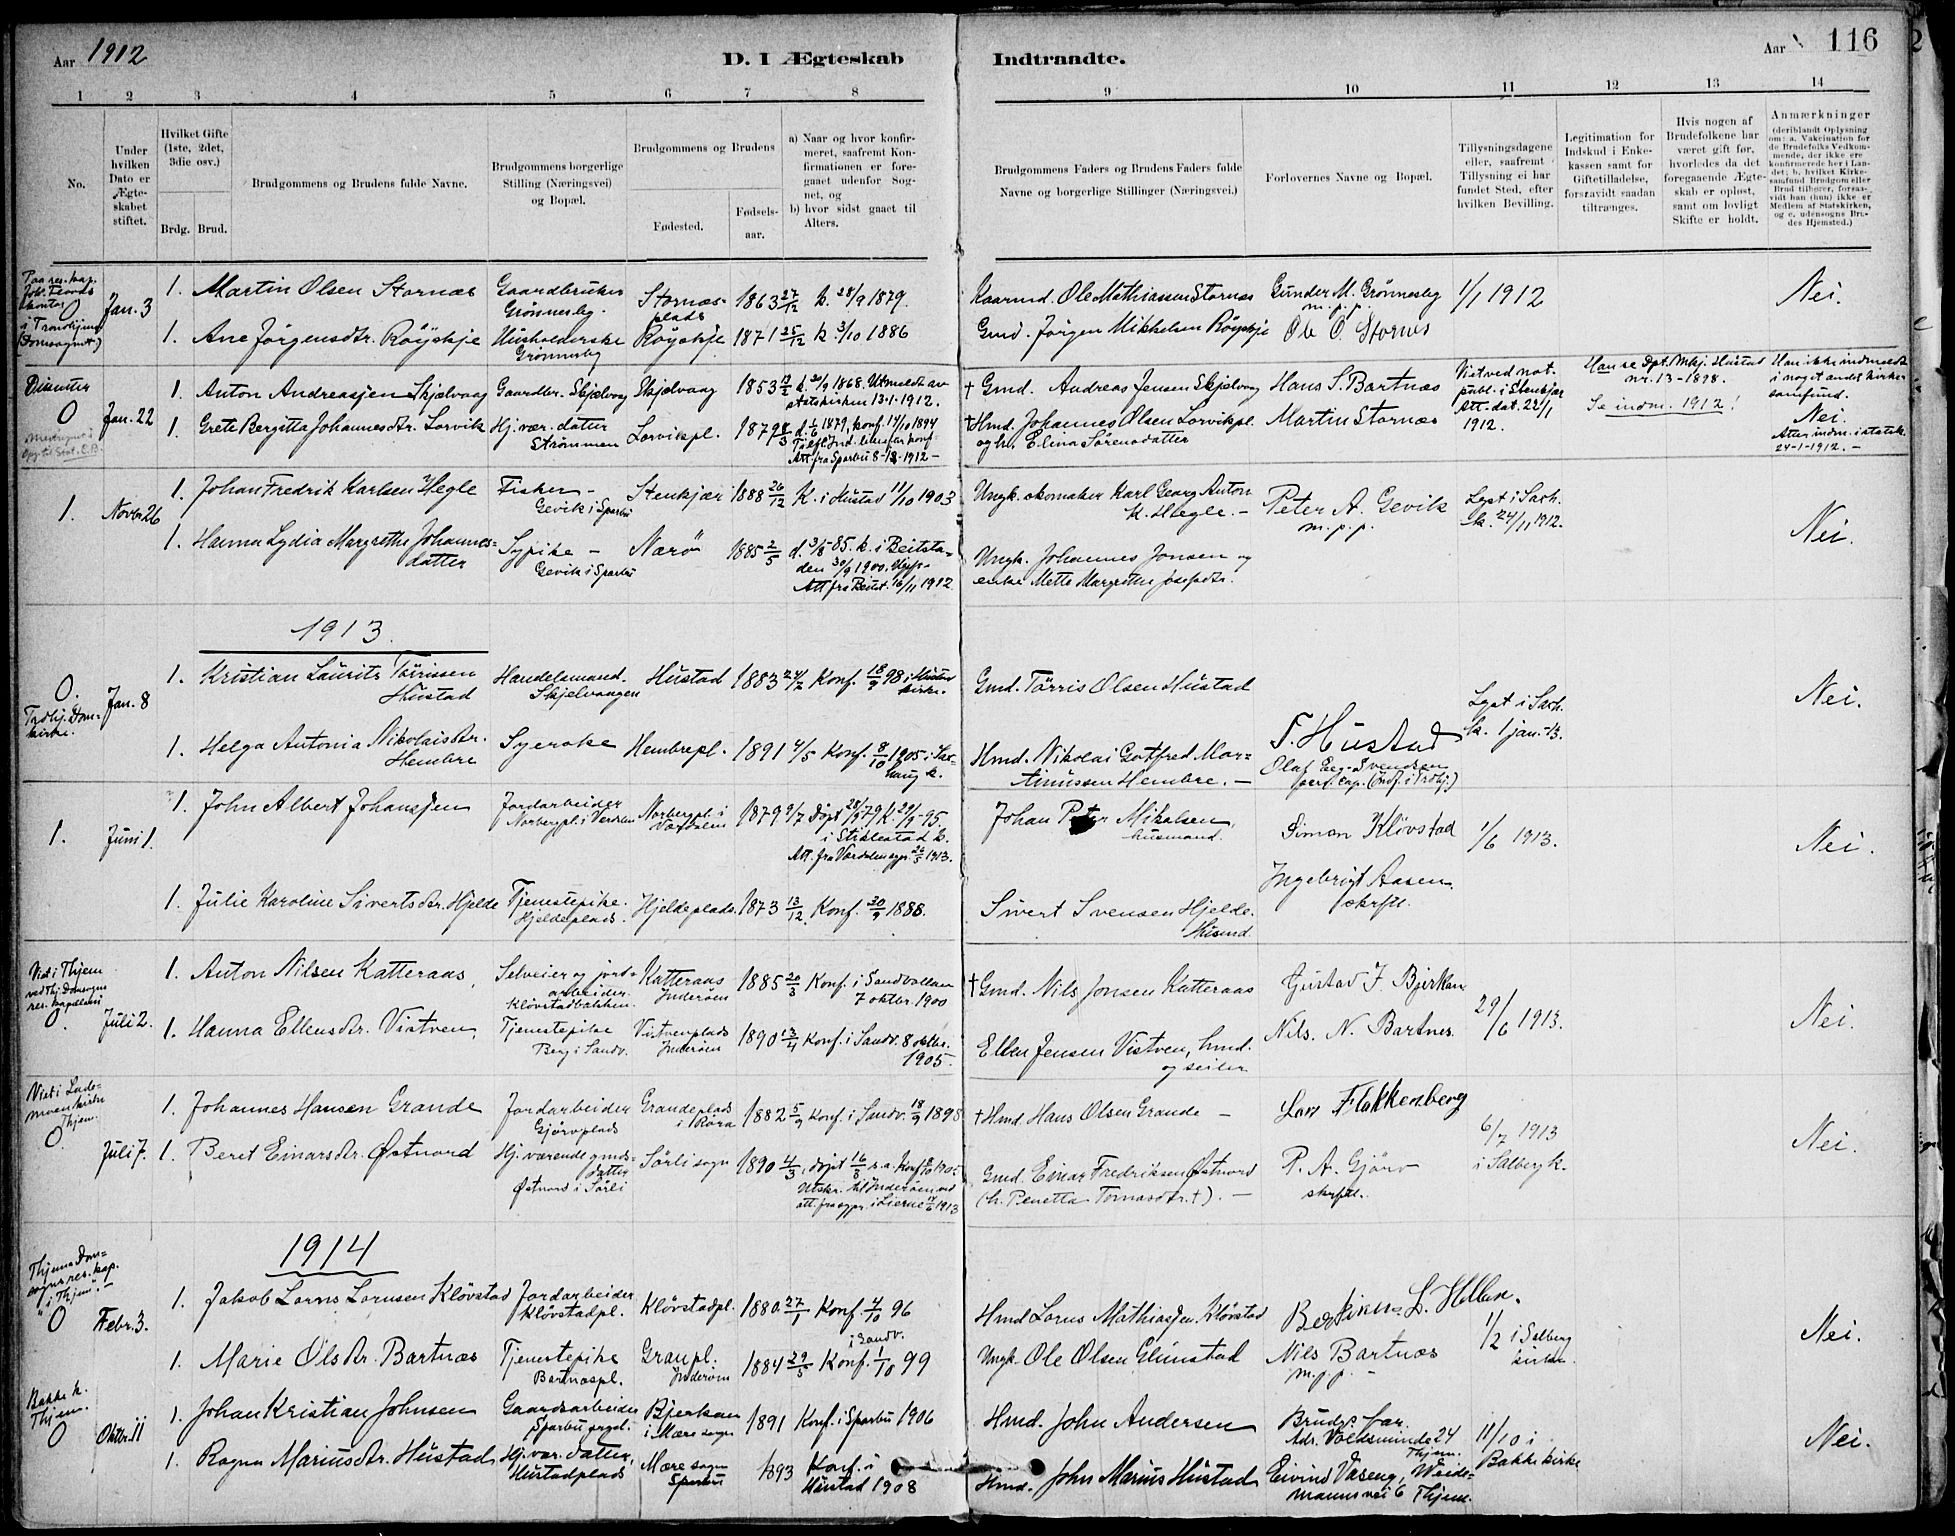 Aar 1912
D. I Ægteskab
Indtraadte.
Aar
116
1 2 3 4 5 6 7 8 9 10 11 12 13 14
No.
Under hvilken Dato er Ægteskabet stiftet.
Hvilket Gifte (1ste, 2det, 3die osv.)
Brdg. Brud.
Brudgommens og Brudens fulde Navne.
Brudgommens borgerlige Stilling (Næringsvei) og Bopæl.
Brudgommens og Brudens
Fødested.
Fødselsaar.
a) Naar og hvor konfirmeret, saafremt Konfirmationen er foregaaet udenfor Sognet, og
b) hvor sidst gaaet til Alters.
Brudgommens Faders og Brudens Faders fulde Navne og borgerlige Stillinger (Næringsvei.)
Forlovernes Navne og Bopæl.
Tillysningsdagene eller, saafremt Tillysning ei har fundet Sted, efter hvilken Bevilling.
Legitimation for Indskud i Enkekassen samt for Giftetilladelse, forsaavidt saadan tiltrænges.
Hvis nogen af Brudefolkene har været gift før, hvorledes da det foregaaende Ægteskab er opløst, samt om lovligt Skifte er holdt.
Anmærkninger
(deriblandt Oplysning om: a. Vakcination for de Brudefolks Vedkommende, der ikke ere konfirmerede her i Landet; b. hvilket Kirkesamfund Brudgom eller Brud tilhører, forsaavidt han (hun) ikke er Medlem af Statskirken, og c. udensogns Brudes Hjemsted.)
0 Jan. 3
1. Martin Olsen Stornæs Gaardbruker Grønnesby. Stornæsplads 1863 27/12 k. 28/9 1879.
Kaarmd. Ole Mathiassen Stornæs Gunder M. Grønnesby m.p.p. 1/1 1912 Nei.
1. Ane Jørgensdtr. Röyskje Husholderske Grønnesby Röyskje 1871 25/12 k. 3/10 1886
Gmd. Jörgen Mikkelsen Röyskje Ole O. Stornes
Dissenter 0 Jan. 22
1. Anton Andreassen Skjelvaag Gaardbr. Skjelvaag Skjelvaag 1853 k. 1868. Utmeldt av statskirken 13-1-1912.
† Gmd. Andreas Jensen Skjelvag Hans S. Bartnæs Viet ved not. publ. i Stenkjær Att. dat. 22/1 1912.
Han se Dpt. Mkj. Hustad nr. 13-1898.
Se indm. 1912!
Han ikke indmeldt i noget andet kirkesamfund.
Nei.
Atter indm. i statsk. 24-1-1912.
1. Grete Bergitta Johannesdtr. Lorvik Hj. vær. datter Strömmen Lorvikpl. 1879 d. 1879, konf. 1894
Att. fra Sparbu 8-1-1912
†Hmd. Johannes Olsen Lorvikpl. og h. Elena Sörensdatter Martin Stornæs
1. Novbr 26
1. Johan Fredrik Karlsen Hegle Fisker - Gevik i Sparbu Stenkjær 1888 26/12 K. i Hustad 11/10 1903
Ungk. skomaker Karl Georg Anton K. Hegle. - Peter A. Gevik m.p.p. Lyst i Sakh. k. 24/11 1912. Nei.
1. Hanna Lydia Margrethe Johannesdatter Sypike - Gevik i Sparbu Nærö 1885 2/5 d. 3/8 85. k. i Beitstaden 30/9 1900. Att fra Beitst. 16/11 1912
Ungk. Johannes Jonsen og enke Mette Margrethe Josefsdtr.
1913.
0. Trdhj. Domkirke. Jan. 8
1. Kristian Laurits Törrissen Hustad Handelsmand. Skjelvaagen Hustad 1883 24/2 Konf. 18/9 98 i Hustad kirke.
Gmd. Törris Olsen Hustad T. Hustad Lyst i Sakh. k. 1 jan. -13. Nei.
1. Helga Antonia Nikolaisdtr. Hembre Syerske Hembrepl. 1891 4/5 Konf. 8/10 1905 i Sakshaug k.
Hmd. Nikolai Gotfred Martinussen Hembre. - Olaf Eeg-Svendsen
1. Juni 1.
1. John Albert Johanssen Jordarbeider Norbergpl. i Verdalen Norbergpl. i Værdalen 1879 9/7 döpt 28/9 79 k. 29/9 -95. i Stiklestad k. Att. fra Værdalen sgpr. 26/5 1913.
Johan Peter Mikalsen, husmand. Simon Klövstad 1/6 1913. Nei.
1. Julie Karoline Sivertsdtr. Hjelde Tjenestepike. Hjeldeplads. Hjeldeplads. 1873 13/12 Konf. 30/9 1888.
Sivert Svensen Hjelde. Husmd. Ingebrigt Aasen skrftl.
0. Juli 2.
1. Anton Nilsen Katteraas, Selveier og jordarbeider. Klövstadbakken. Katteraas Inderöen 1885 20/3 Konf. i Sandvollan 7 oktbr. 1900
†Gmd. Nils Jonsen Katteraas Gustav J. Bjerkan 29/6 1913. Nei.
1. Hanna Ellensdtr. Vistven, Tjenestepike Berg i Sandv. Vistvenplads Inderöen 1890 13/4 Konf. i Sandv. 8 oktbr. 1905 -
Ellen Jensen Vistven, hmd. og seiler Nils. N. Bartnes.
Viet i Lademoen kirke Thjem. 0 Juli 7.
1. Johannes Hansen Grande Jordarbeider Gjörvplads Grandeplads i Röra 1882 5/9 Konf. i Sandv. 18/9 1898
† Hmd. Hans Olsen Grande - Lars Flakkenberg 6/7 1913 i Salberg k. Nei.
1. Beret Einarsdtr. Østnord Hj. værende gmds. datter Østnord i Sörli Sörli sogn 1890 4/3, döpt 16/3 s.a. Utskr. til Inderöen ved att. fra sgpr. i Lierne 1913
Gmd. Einar Fredriksen Østnord (h. Penetta Tomasdtr. †). - P. A. Gjörv skrftl.
1914
Thjems Domsogns res. kap. i Thjem. - 0 Febr. 3.
1. Jakob Lorns Lornsen Klövstad Jordarbeider Klövstadpl. Klövstadpl. 1880 27/1 Konf. 4/10 96 i Sandv.
Hmd Lorns Mathiassen Klövstad 1/2 i Salberg kirke. Nei.
1. Marie Olsdtr. Bartnæs Tjenestepike Bartnæspl. Granpl. Inderöen 1884 29/5 Konf. 1/10 99
Ungk. Ole Olsen Glimstad Nils Bartnæs m.p.p. -
Bakke k. Thjem. 0 Oktbr. 11
1. Johan Kristian Johnsen Gaardsarbeider Bjerkan i Mære sogn 1891 Konf. i Sparbu 1906
Hmd. John Andersen Brudg.s far. Adr. Voldsminde 24 Thjem. 11/10 i Bakke kirke Nei.
1. Ragna Mariusdtr. Hustad Hj. vær. datter, Hustadplads Mære sogn Sparbu 1893 Konf. i Hustad 1908
Hmd. John Marius Hustad Eivind Vaseng, Weidemannsvei 6 Thjem.